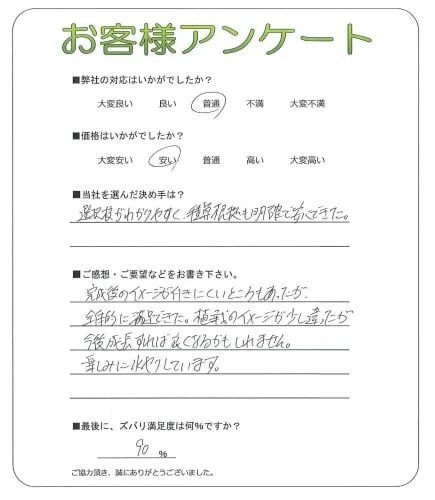 お客様アンケート
■弊社の対応はいかがでしたか？
大変良い 良い 普通 不満 大変不満
■価格はいかがでしたか？
大変安い 安い 普通 高い 大変高い
■当社を選んだ決め手は？
選択肢がわかりやすく、積算根拠も明確で安心できた。
■ご感想・ご要望などをお書き下さい。
完成後のイメージが付きにくいところもあったが
全体的に満足できた。植栽のイメージが少し違ったが
今後成長すれば良くなるかもしれません。
楽しみに水やりしています。
■最後に、ズバリ満足度は何％ですか？
90 ％
ご協力頂き、誠にありがとうございました。